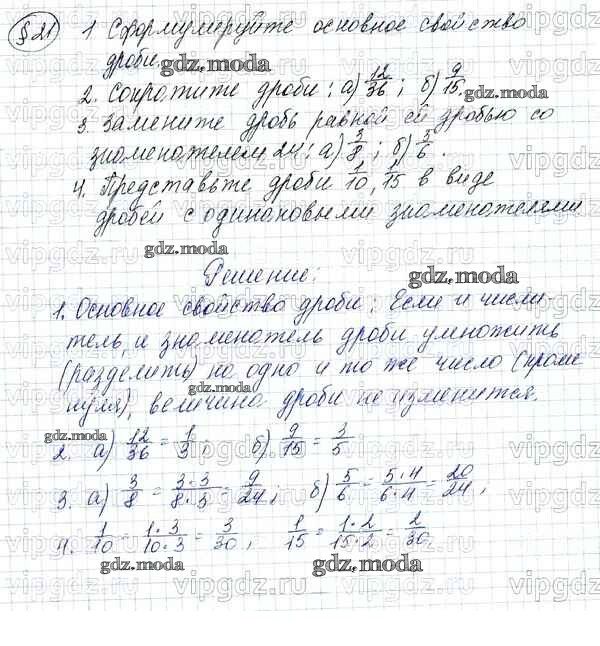 § 21 1 Сформулируйте основное свойство
дроби.
2. Сократите дроби: а) 12/36; б) 9/15.
3. Замените дробь равной ей дробью со
знаменателем 24: а) 3/8; б) 5/6.
4. Представьте дроби 1/10, 1/15 в виде
дробей с одинаковыми знаменателями.
Решение:
1. Основное свойство дроби: Если и числи-
тель, и знаменатель дроби умножить
(разделить) на одно и то же число (кроме
нуля), величина дроби не изменится.
2. а) 12/36 = 1/3; б) 9/15 = 3/5
3. а) 3/8 = 3·3/8·3 = 9/24; б) 5/6 = 5·4/6·4 = 20/24;
4. 1/10 = 1·3/10·3 = 3/30; 1/15 = 1·2/15·2 = 2/30
gdz.moda
vipgdz.ru